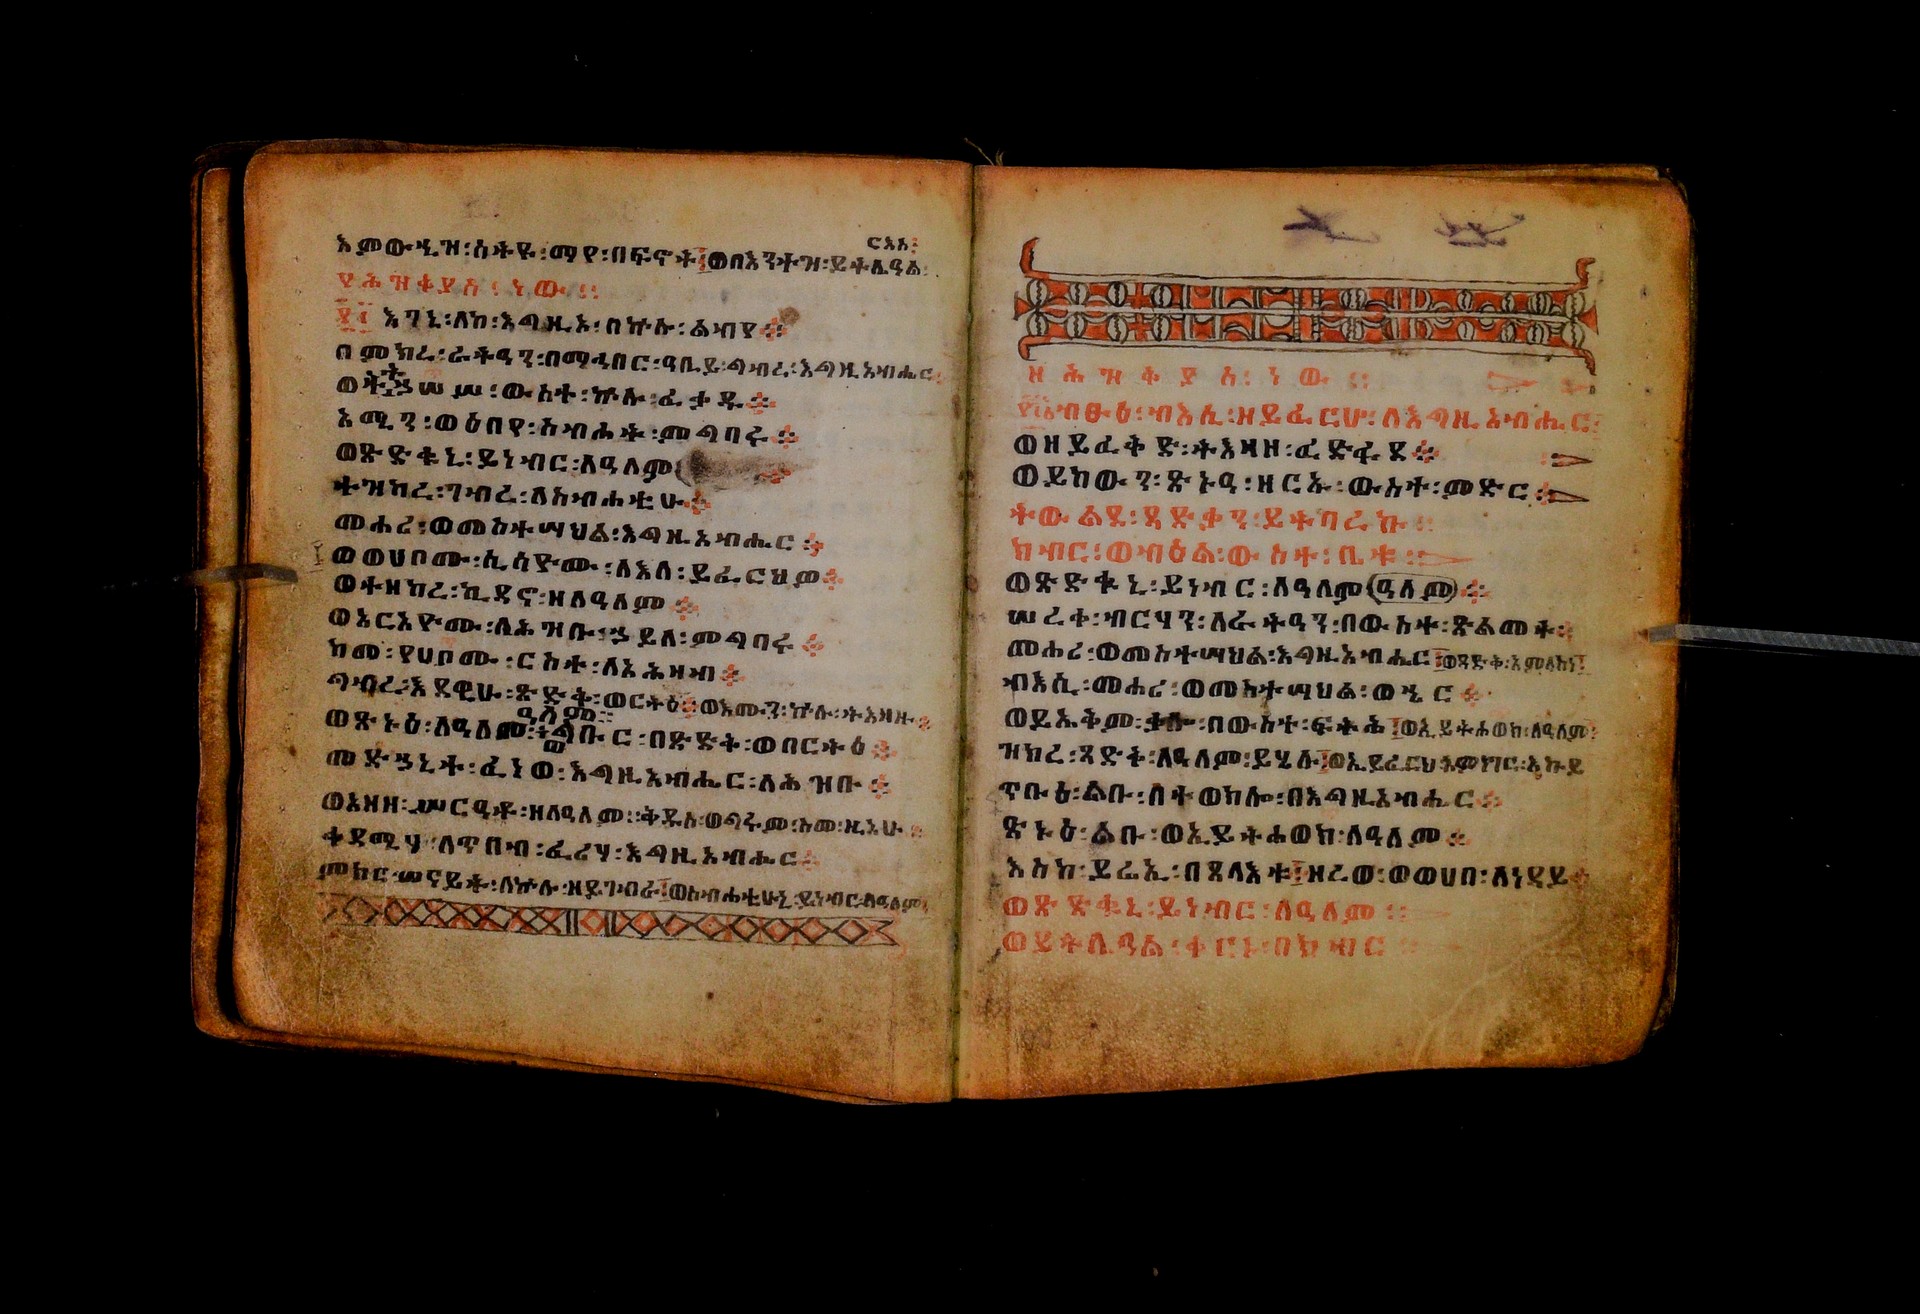 ርእሰ፡
እምውኂዝ፡ሰትየ፡ማየ፡በፍኖት፤ወበእንተዝ፡ይትሌዓል፡
የሕዝቅያስ፡ነው፡፡
፻፲ እገኒ፡ለከ፡እግዚኦ፡በኵሉ፡ልብየ።
በምክረ፡ራትዓን፡በማኅበር፡ዓቢይ፡ግብረ፡እግዚአብሔር፡
ወትትኃሠሥ፡ውስተ፡ኵሉ፡ፈቃዱ።
አሚን፡ወዕበየ፡ስብሐት፡ምግባሩ።
ወጽድቁኒ፡ይነብር፡ለዓለም
ተዝካረ፡ገብረ፡ለስብሐቲሁ።
መሐሪ፡ወመስተሣህል፡እግዚአብሔር።
ወወሀቦሙ፡ሲሳዮሙ፡ለእለ፡ይፈርህዎ።
ወተዘከረ፡ኪዳኖ፡ዘለዓለም።
ወአርአዮሙ፡ለሕዝቡ፡ኃይለ፡ምግባሩ።
ከመ፡የሀቦሙ፡ርስተ፡ለአሕዛብ።
ግብረ፡እደዊሁ፡ጽድቅ፡ወርትዕ፡ወእሙን፡ኵሉ፡ትእዛዙ።
ዓለም፡
ወጽኑዕ፡ለዓለመ፡ወግቡር፡በጽድቅ፡ወበርትዕ።
መድኃኒተ፡ፈነወ፡እግዚአብሔር፡ለሕዝቡ።
ወአዘዘ፡ሥርዓቶ፡ዘለዓለም፡፡ቅዱስ፡ወግሩም፡ስሙ፡ዚአሁ።
ቀዳሚሃ፡ለጥበብ፡ፈሪሃ፡እግዚአብሔር።
ምክር፡ሠናይት፡ለኵሉ፡ዘይገብራ፤ወስብሐቲሁኒ፡ይነብር፡ለዓለም፡
ዘሕዝቅያስ፡ነው፡፡
፻፲፩ብፁዕ፡ብእሲ፡ዘይፈርሆ፡ለእግዚአብሔር፡
ወዘይፈቅድ፡ትእዛዘ፡ፈድፋደ።
ወይከውን፡ጽኑዓ፡ዘርኡ፡ውስተ፡ምድር።
ትውልደ፡ጻድቃን፡ይትባረኩ፡፡
ክብር፡ወብዕል፡ውስተ፡ቤቱ፡፡
ወጽድቁኒ፡ይነብር፡ለዓለም(ዓለም)።
ሠረቀ፡ብርሃን፡ለራትዓን፡በውስተ፡ጽልመት።
መሐሪ፡ወመስተሣህል፡እግዚአብሔር፤ወጻድቅ፡አምላክነ፤
ብእሲ፡መሐሪ፡ወመስተሣህል፡ወኄር።
ወይኤቅም፡ቃሎ፡በውስተ፡ፍትሕ፤ወኢይትሐወክ፡ለዓለም፡
ዝክረ፡ጻድቅ፡ለዓለም፡ይሄሉ፤ወኢይፈርህ፡እምነገር፡እኩይ
ጥቡዕ፡ልቡ፡ለተወክሎ፡በእግዚአብሔር።
ጽኑዕ፡ልቡ፡ወኢይትሐወክ፡ለዓለም።
እስከ፡ይሬኢ፡በጸላእቱ፤ዘረወ፡ወወሀበ፡ለነዳይ።
ወጽድቁኒ፡ይነብር፡ለዓለም፡፡
ወይትሌዓል፡ቀርኑ፡በክብር